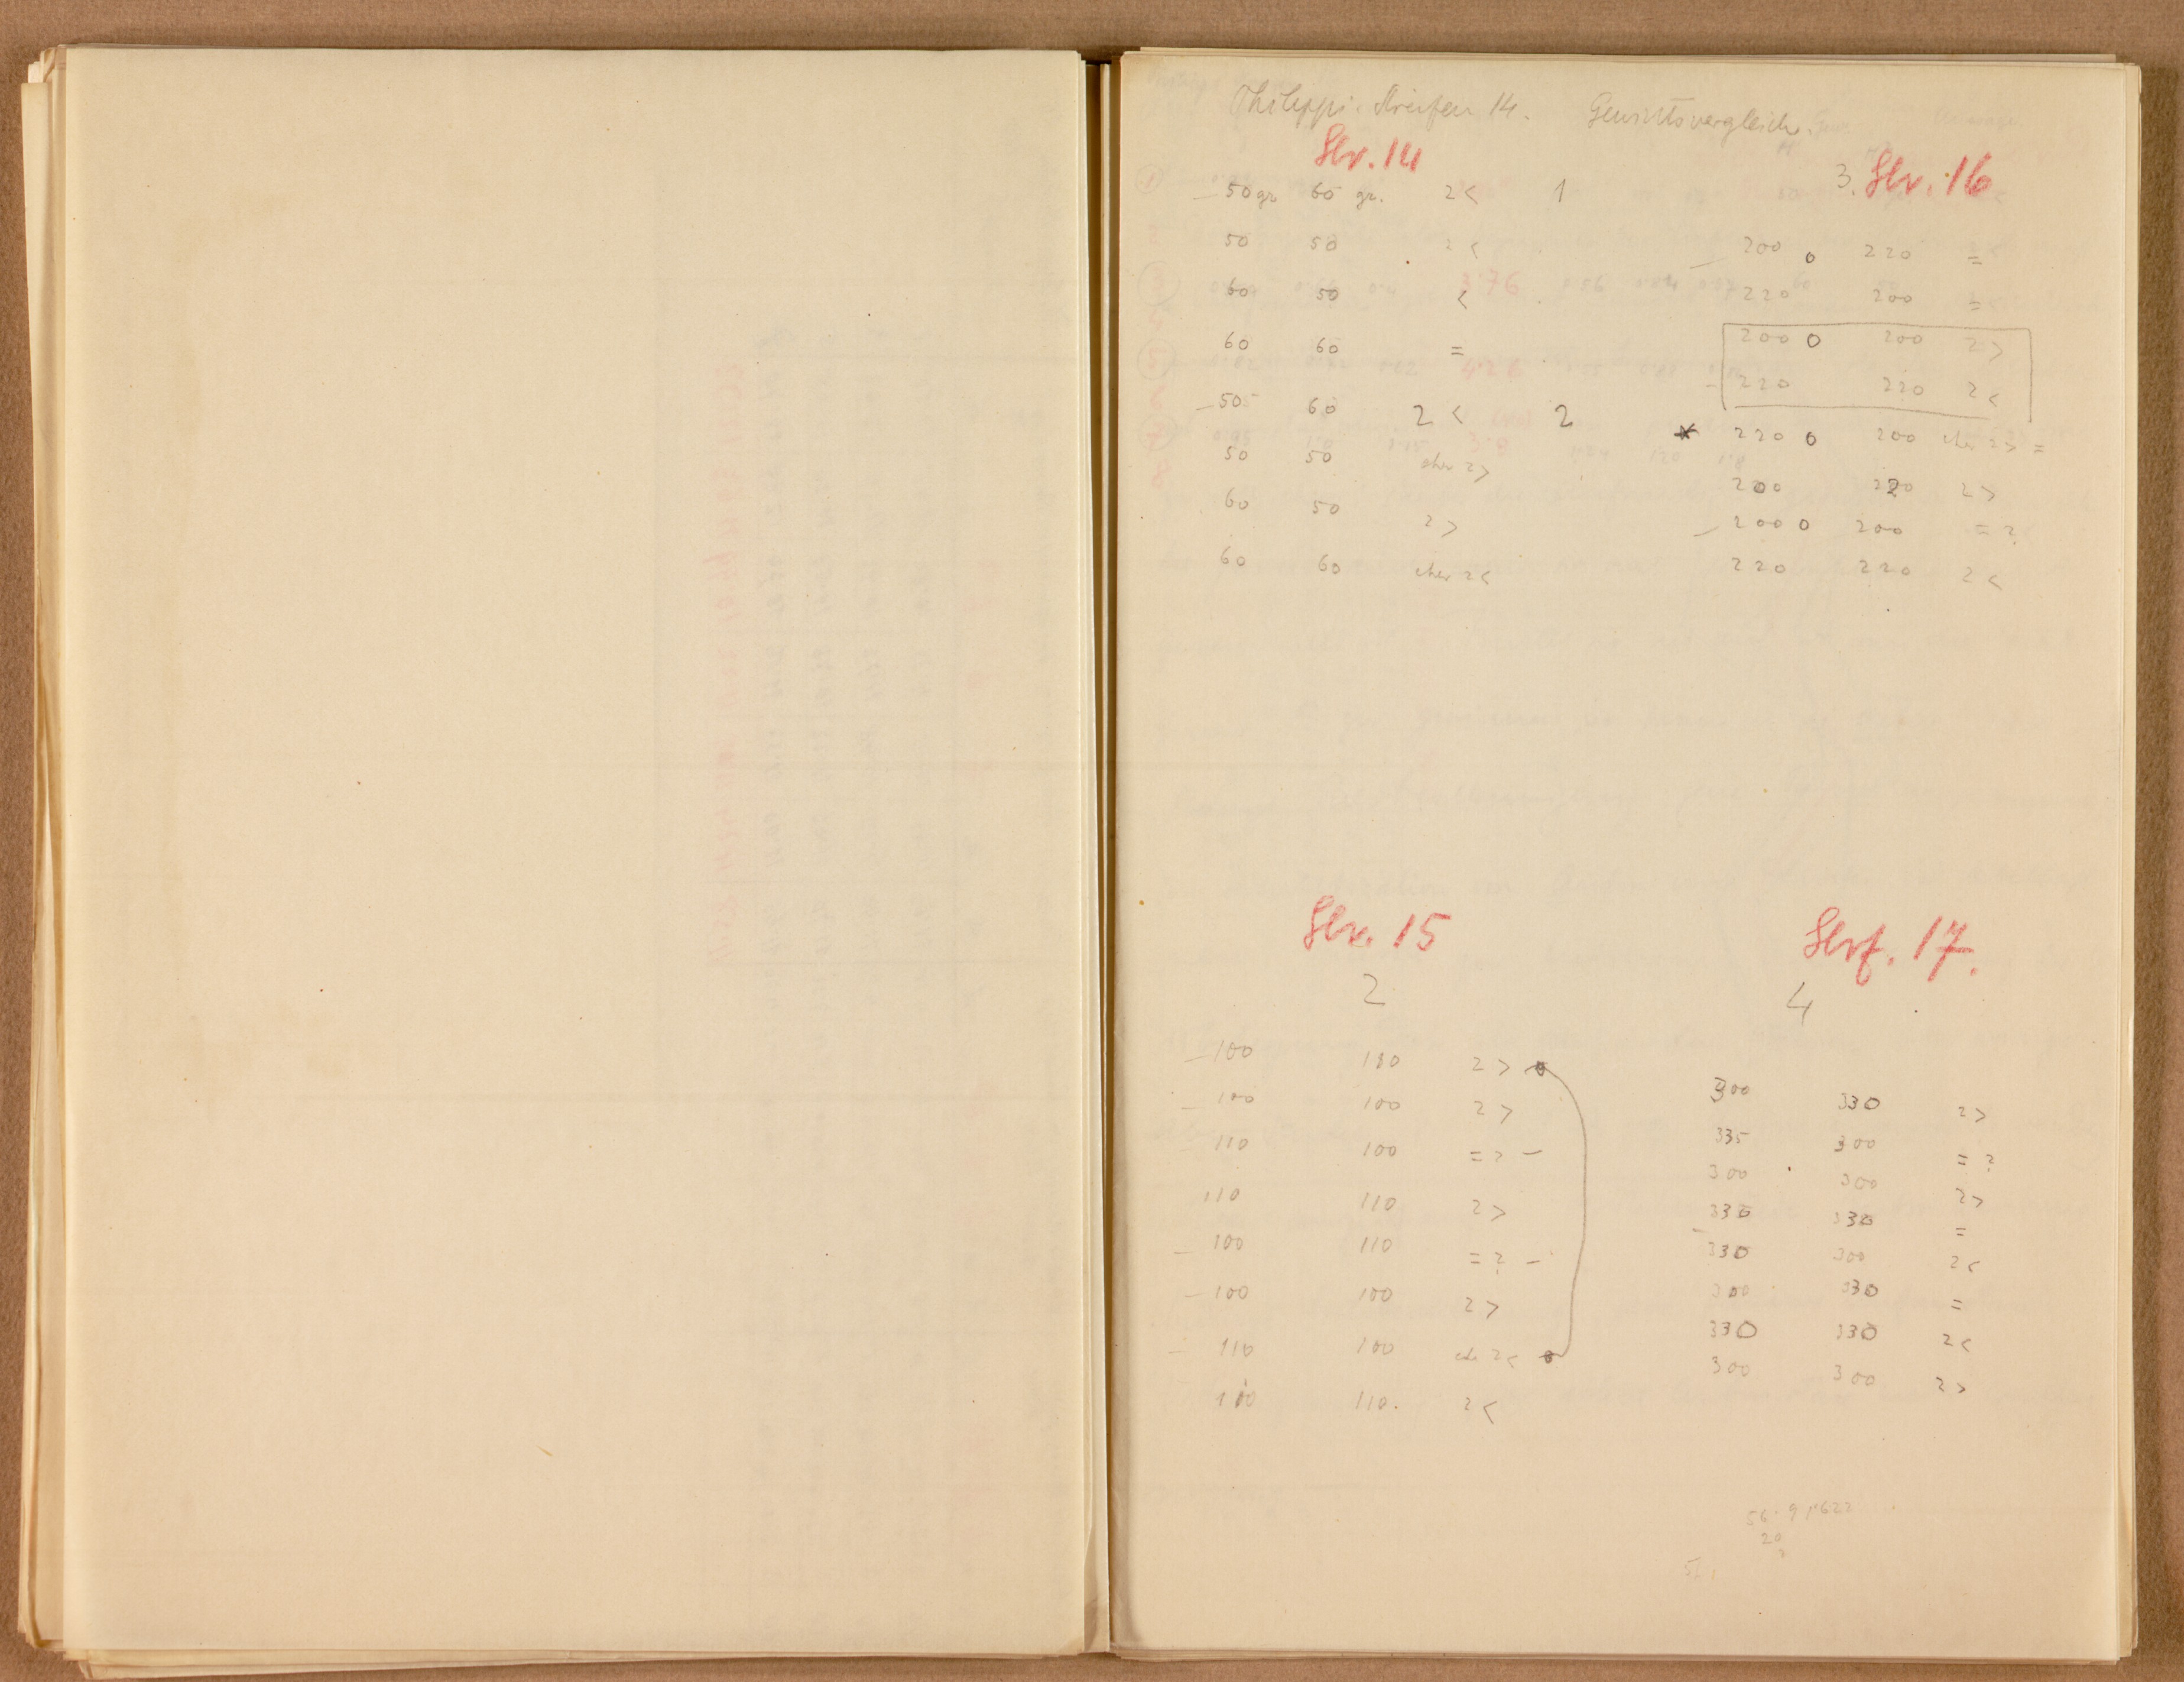 Philippi. Streifen 14. Gewichtsvergleich.
Str. 14
50 gr 60 gr. 2 < 1
50 50 2 <
60 50 <
60 60 =
50 60 2 < 2
50 50 eher 2 >
60 50 2 >
60 60 eher 2 <
3. Str. 16
200 0 220 =
220 200 =
200 0 200 2 >
220 220 2 <
220 0 200 eher 2 > =
200 220 2 >
200 0 200 = ?
220 220 2 <
Str. 15
2
100 110 2 >
100 100 2 >
110 100 = ? -
110 110 2 >
100 110 = ? -
100 100 2 >
110 100 eh 2 <
110 110. 2 <
Strf. 17.
4
300 330 2 >
335 300 = ?
300 300 2 >
330 330 =
330 300 2 <
300 330 =
330 330 2 <
300 300 2 >
20